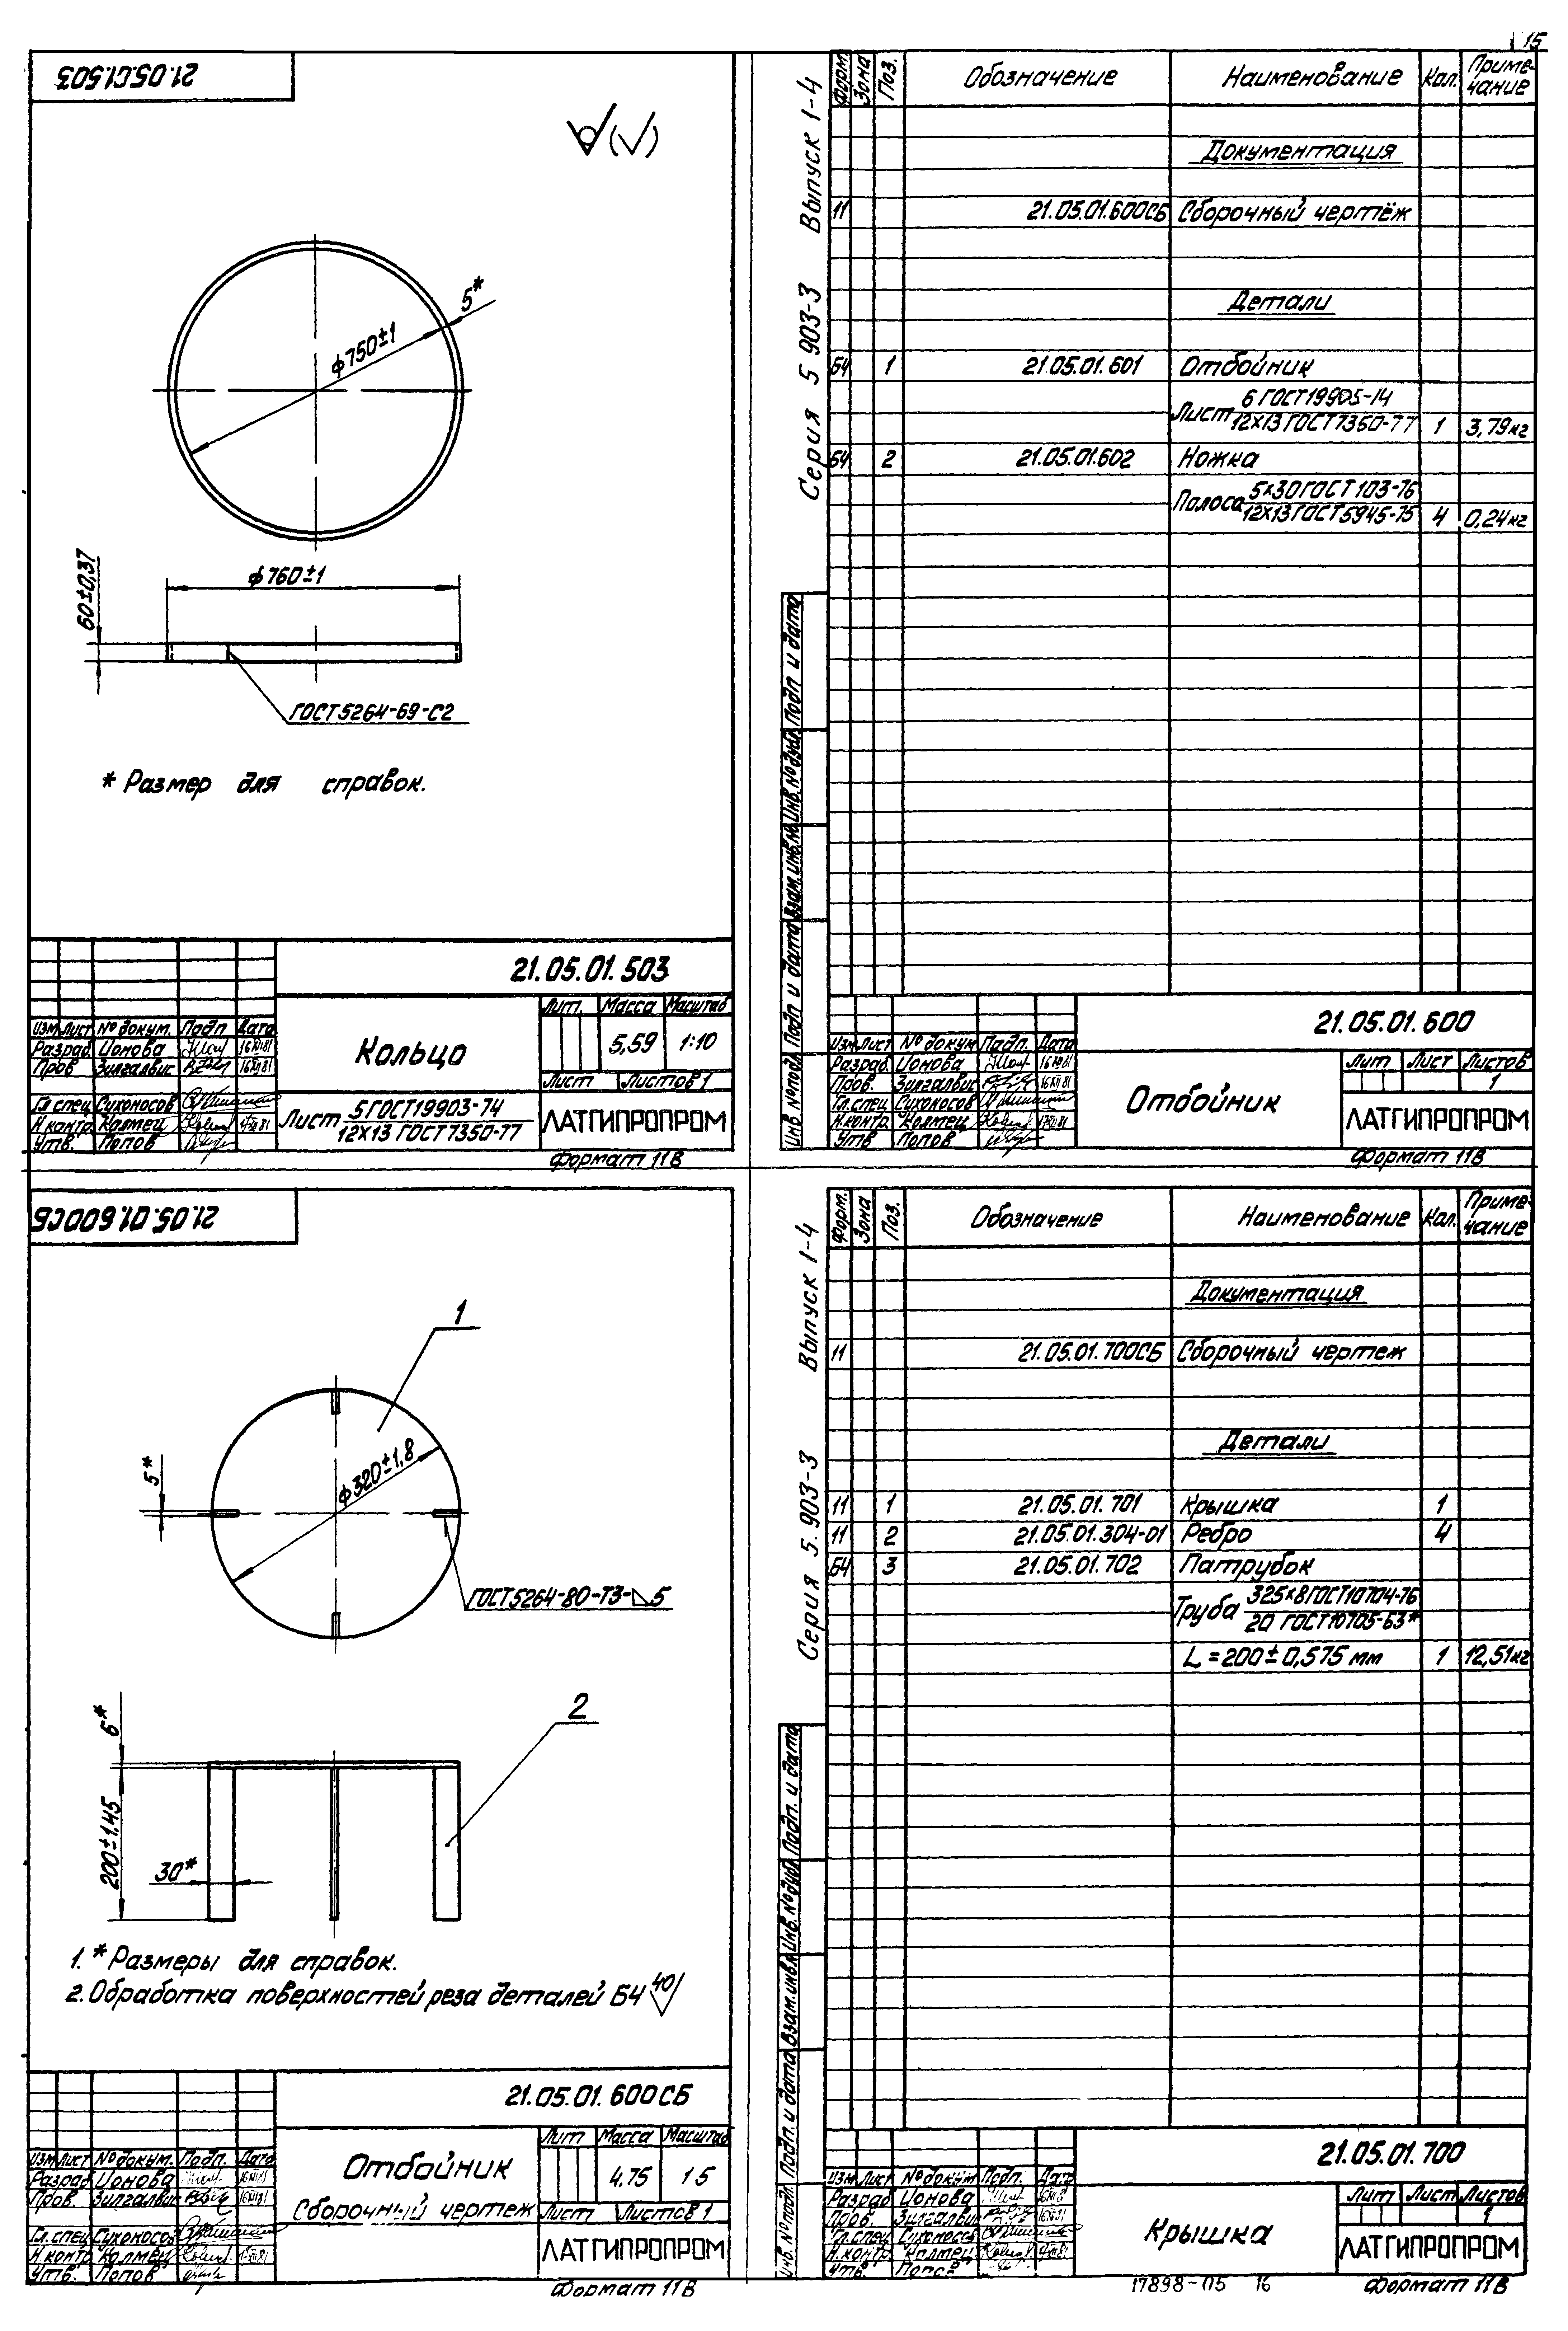 15
21.05.01.503
Ф750±1
5*
Ф760±1
60±0,37
ГОСТ 5264-69-С2
* Размер для справок.
21.05.01.503
Изм Лист № докум. Подп Дата
Разраб. Ионова 16.XII.81
Пров Зилгалвис
Гл.спец Сухоносов
Н.контр. Калтец
Утв. Попов
Кольцо
Лит. Масса Масштаб
5,59 1:10
Лист Листов 1
Лист 5 ГОСТ 19903-74
12Х13 ГОСТ 7350-77
ЛАТГИПРОПРОМ
Формат 11В
Серия 5 903-3 Выпуск 1-4
Форм Зона Поз. Обозначение Наименование Кол. Примечание
Документация
11 21.05.01.600СБ Сборочный чертёж
Детали
БЧ 1 21.05.01.601 Отбойник
Лист 6 ГОСТ 19905-14
12Х13 ГОСТ 7350-77 1 3,79кг
БЧ 2 21.05.01.602 Ножка
Полоса 5х30 ГОСТ 103-76
12Х13 ГОСТ 5945-75 4 0,24кг
Инв № подл Подп и дата Взам. инв. № Инв. № дубл. Подп и дата
21.05.01.600
Изм Лист № докум Подп. Дата
Разраб. Ионова
Пров. Зилгалвис
Гл.спец Сухоносов
Н.контр. Калтец
Утв Попов
Отбойник
Лит Лист Листов
1
ЛАТГИПРОПРОМ
Формат 11В
21.05.01.600СБ
1
Ф320±1,8
5*
ГОСТ 5264-80-Т3-◺5
2
6*
200±1,45
30*
1. * Размеры для справок.
2. Обработка поверхностей реза деталей БЧ 40
21.05.01.600СБ
Изм Лист № докум. Подп. Дата
Разраб Ионова
Пров. Зилгалвис
Гл.спец Сухоносов
Н.контр Калтец
Утв. Попов
Отбойник
Сборочный чертеж
Лит Масса Масштаб
4,75 1 5
Лист Листов 1
ЛАТГИПРОПРОМ
Формат 11В
Серия 5. 903-3 Выпуск 1-4
Форм. Зона Поз. Обозначение Наименование Кол. Примечание
Документация
11 21.05.01.700СБ Сборочный чертеж
Детали
11 1 21.05.01.701 Крышка 1
11 2 21.05.01.304-01 Ребро 4
БЧ 3 21.05.01.702 Патрубок
Труба 325х8 ГОСТ 10704-76
20 ГОСТ 10705-63*
L=200±0,575 мм 1 12,51кг
Инв. № подл. Подп. и дата Взам. инв. № Инв. № дубл Подп. и дата
21.05.01.700
Изм Лист № докум Подп. Дата
Разраб Ионова
Пров. Зилгалвис
Гл.спец Сухоносов
Н.контр Калтец
Утв. Попов
Крышка
Лит Лист Листов
1
ЛАТГИПРОПРОМ
17898-05 16 Формат 11В